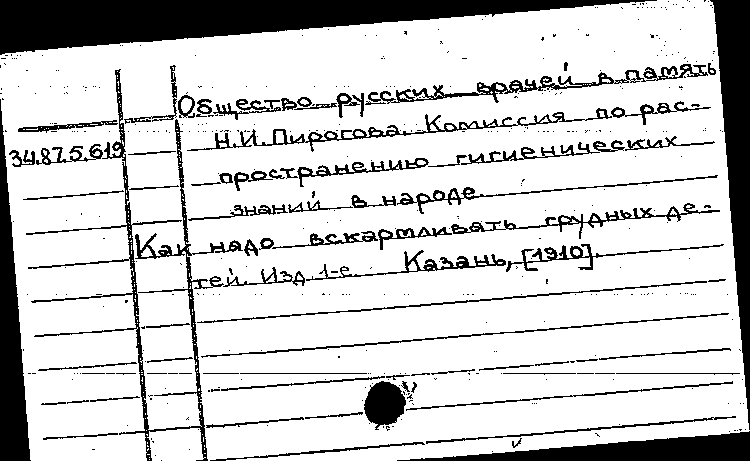 Общество русских врачей в память
34.87.5.619
Н.И. Пирогова. Комиссия по рас-
пространению гигиенических
знаний в народе.
Как надо вскармливать грудных де-
тей. Изд. 1-е. Казань, [1910].